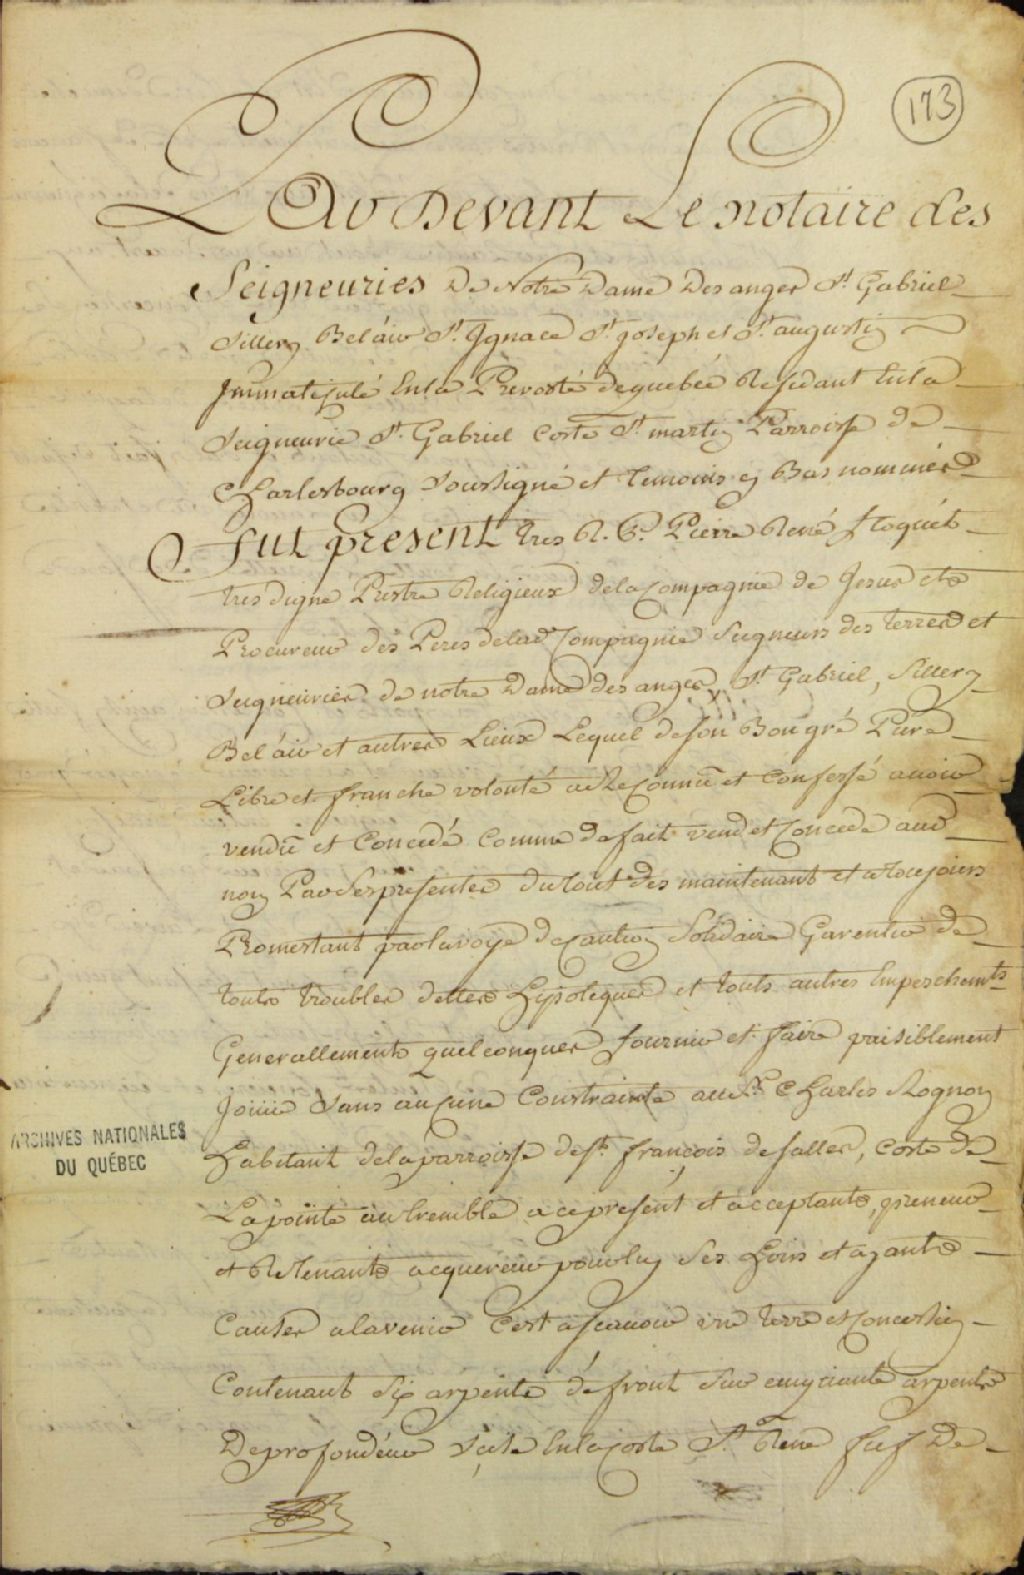 173
Par Devant Le notaire des
Seigneuries De Notre Dame Des anges St. Gabriel
Sillery Belair St. Ignace St. joseph et St. augustin
Immatriculé En la Prevosté de quebec Residant En la
Seigneurie St. Gabriel Coste St. martin Parroisse de
Charlesbourg Soussigné et Temoins cy Bas nommés
Fut present tres R. P. Pierre René floquet
tres digne Prestre Religieux de la Compagnie de Jesus et
Procureur des Peres de lad. Compagnie Seigneurs des terres et
Seigneuries de notre Dame des anges, St. Gabriel, Sillery
Belair et autres Lieux Lequel de son Bon gré Pure
Libre et franche volonté a Reconnu et Confessé avoir
vendu et Concedé Comme de fait vend et Concede aud.
nom Par Ses presentes du tout des maintenant et a toujours
Promettant par la voye de Caution Solidaire Garentir de
touts troubles dettes Hypoteques et touts autres Empeschemts
Generallements quelconques fournir et faire paisiblement
Jouir Sans aucune Contrainte au Sr. Charles Rognon
Habitant de la parroisse de St. françois de salles, Coste de
La pointe au tremble a ce present et acceptants, preneur
et Retenants acquereur pour luy Ses Hoirs et ayants
Causes a lavenir C'est a scavoir une terre et Concession
Contenant Six arpents de front Sur cinquante arpents
De profondeur Scise En la Coste St. René fief De
ARCHIVES NATIONALES
DU QUÉBEC